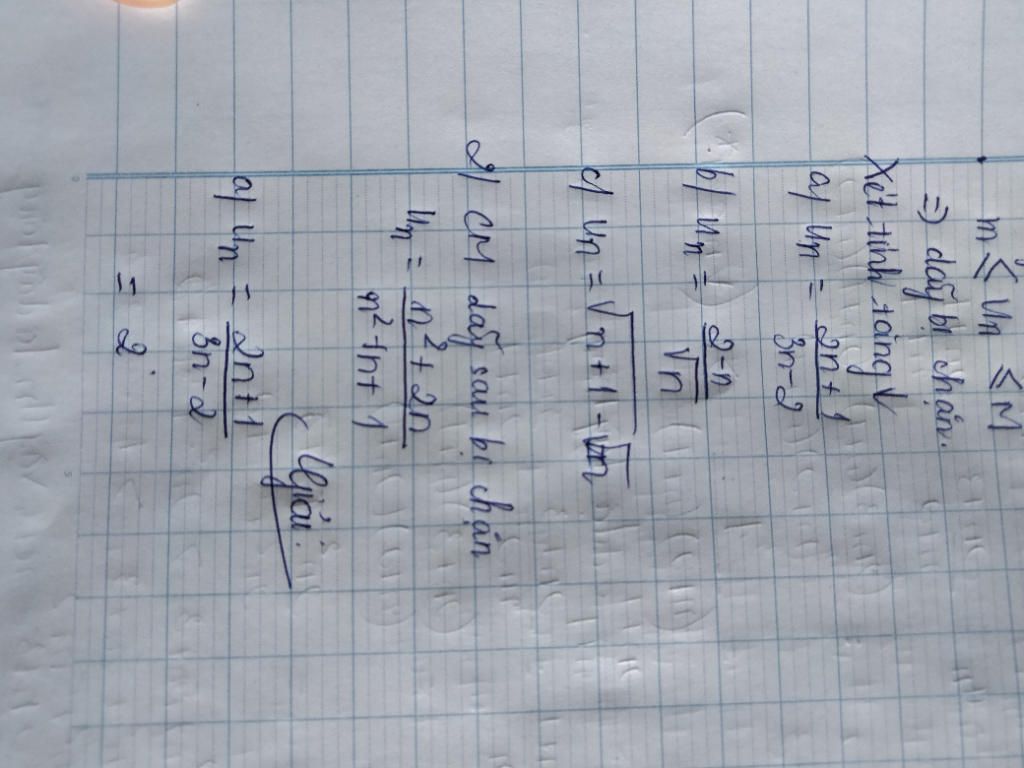 m ≤ un ≤ M
=) dãy bị chặn.
Xét tính tăng ↓
a) un = 2n+1 / 3n-2
b) un = 2-n / √n
c) un = √n+1 - √n
2) CM dãy sau bị chặn
un = n² + 2n / n² + n + 1
Giải.
a) un = 2n+1 / 3n-2
= 2